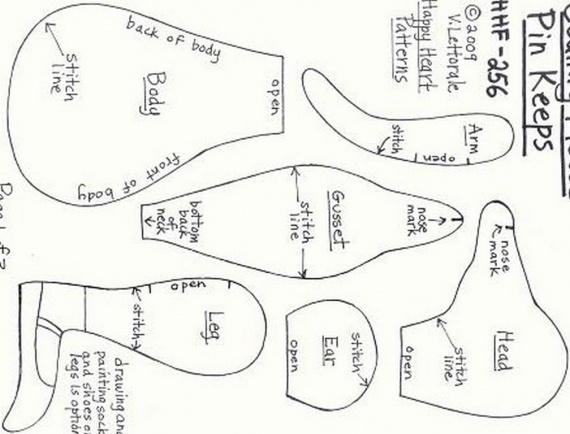 Pin Keeps
HHF-256
© 2009
V. Lettorale
Happy Heart
Patterns
back of body
stitch
line
Body
open
front of body
Arm
stitch
open
Gusset
nose
mark
stitch
line
bottom
back
of
neck
nose
mark
Head
stitch
line
open
Leg
open
stitch
Ear
stitch
open
drawing and
painting sock
and shoes o
legs is option
Page 1 of